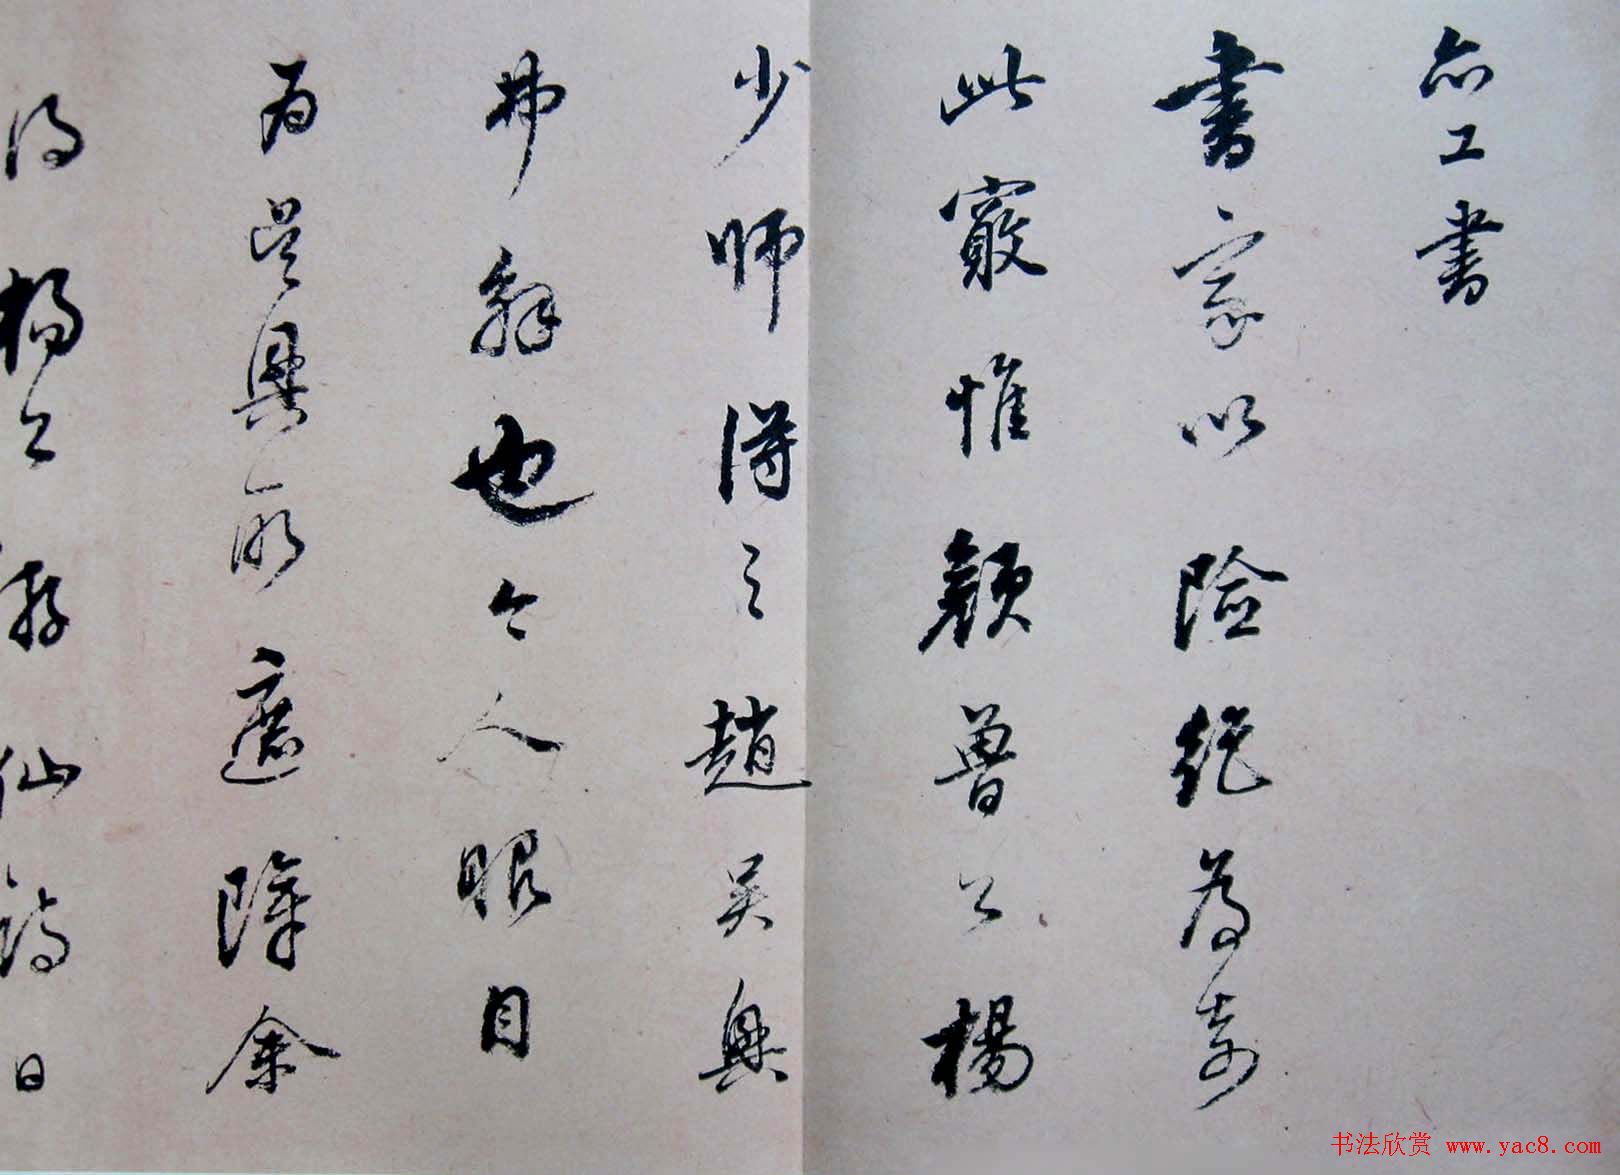 亦工書
書家以險絕為奇
此竅惟顏魯公楊
少師得之趙吳興
弗解也今人眼目
為吳興所遮障余
得楊公游仙詩日
书法欣赏 www.yac8.com